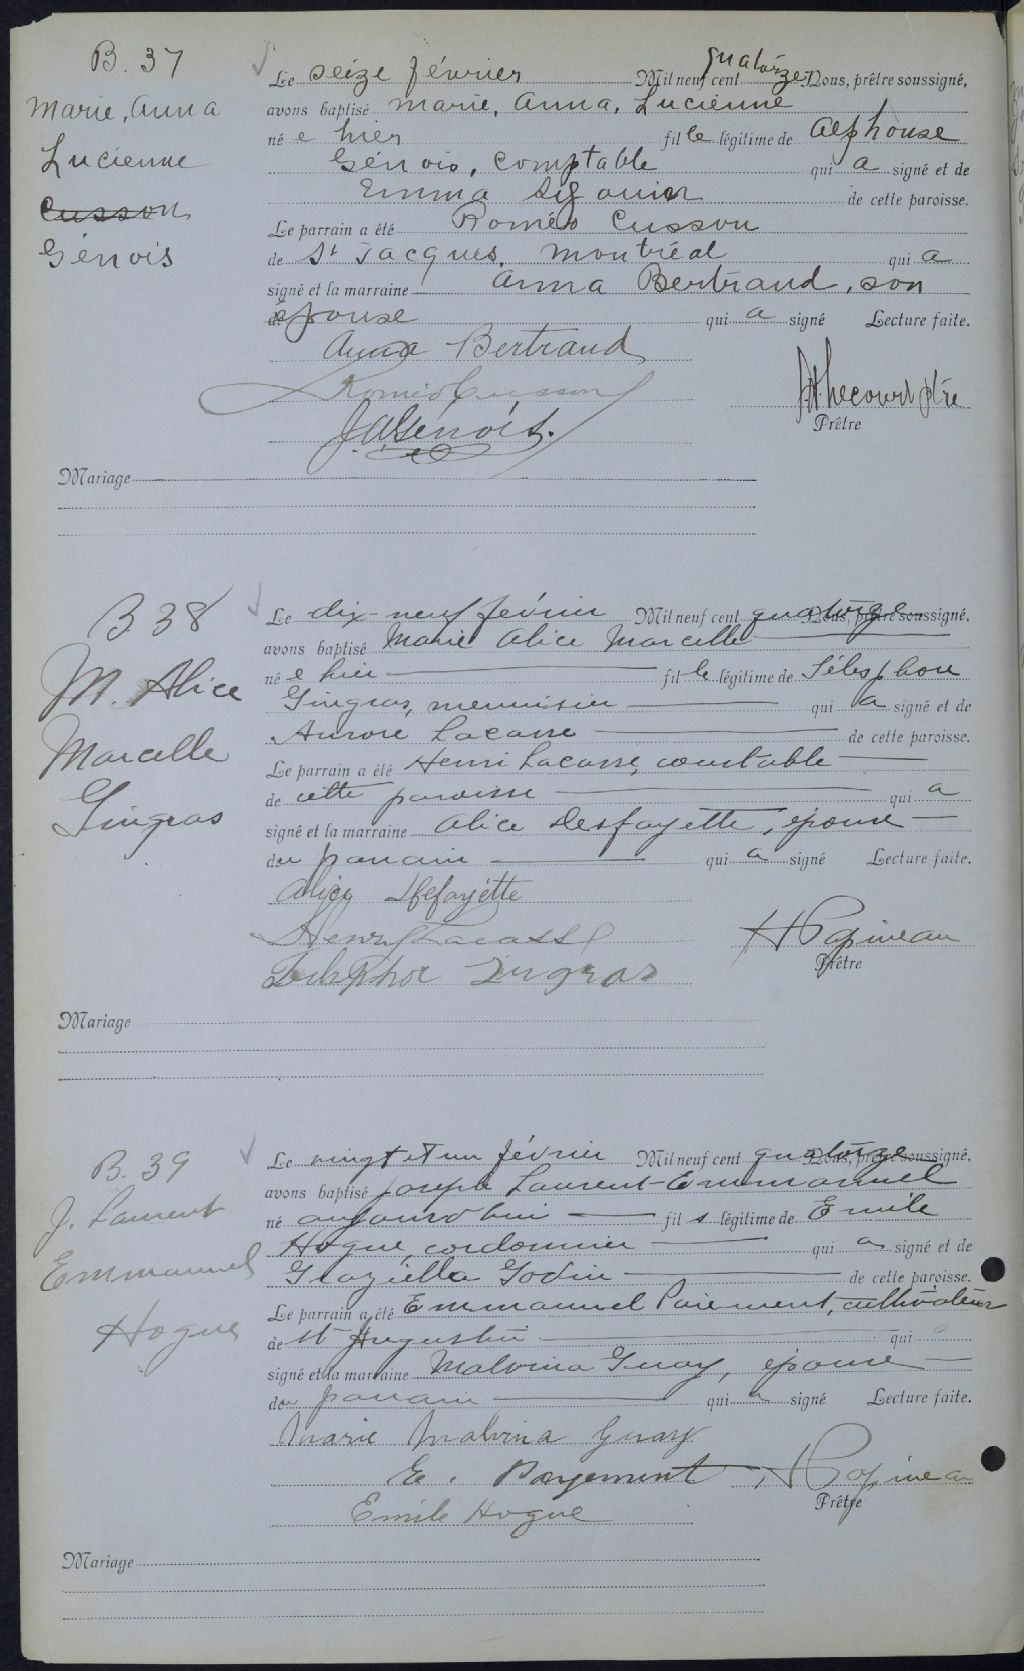 B. 37
Marie, Anna
Lucienne
Cusson
Génois
Le seize février Mil neuf cent quatorze Nous, prêtre soussigné,
avons baptisé Marie, Anna, Lucienne
né e hier fil le légitime de Alphonse
Génois, comptable qui a signé et de
Emma Sigouin de cette paroisse.
Le parrain a été Roméo Cusson
de St Jacques, Montréal qui a
signé et la marraine Anna Bertrand, son
épouse qui a signé Lecture faite.
Anna Bertrand
Roméo Cusson
J.A. Génois.
ptre
Prêtre
Mariage
B 38
M. Alice
Marcelle
Gingras
Le dix-neuf février Mil neuf cent quatorze Nous, prêtre soussigné,
avons baptisé Marie Alice Marcelle
né e hier fil le légitime de Télesphore
Gingras, menuisier qui a signé et de
Aurore Lacasse de cette paroisse.
Le parrain a été Henri Lacasse, constable
de cette paroisse qui a
signé et la marraine Alice Desfayette, épouse
du parrain qui a signé Lecture faite.
Alice
Henry Lacasse
H Papineau
Prêtre
Mariage
B. 39
J. Laurent
Emmanuel
Hogue
Le vingt et un février Mil neuf cent quatorze Nous, prêtre soussigné,
avons baptisé Joseph Laurent-Emmanuel
né aujourd'hui fil s légitime de Emile
Hogue, cordonnier qui a signé et de
Graziella Godin de cette paroisse.
Le parrain a été Emmanuel Paiement, cultivateur
de St Augustin qui a
signé et la marraine Malvina Guay, épouse
du parrain qui a signé Lecture faite.
Marie Malvina Guay
E. Payement H Papineau
Prêtre
Emile Hogue
Mariage